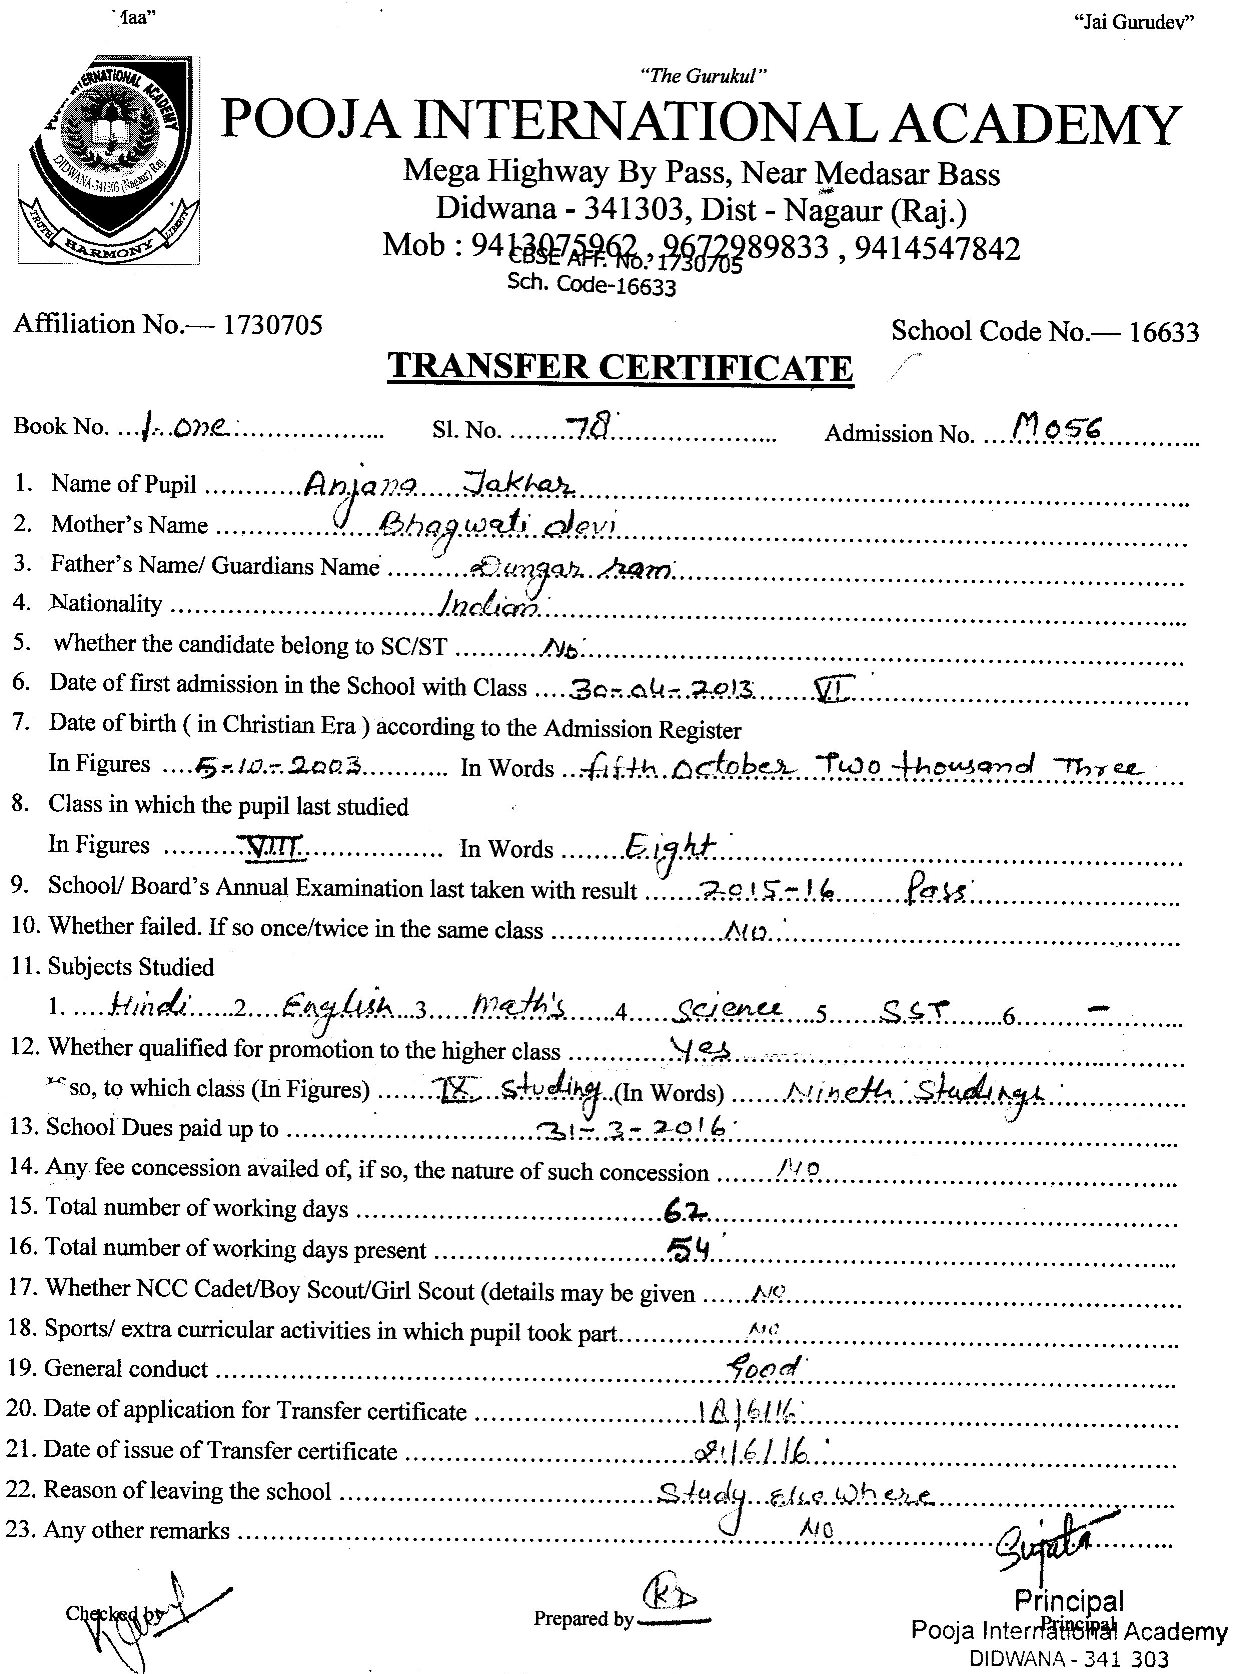 Maa” “Jai Gurudev”
“The Gurukul”
INTERNATIONAL ACADEMY
DIDWANA-341303 (Nagaur) Raj.
TRUTH HARMONY
POOJA INTERNATIONAL ACADEMY
Mega Highway By Pass, Near Medasar Bass
Didwana - 341303, Dist - Nagaur (Raj.)
Mob : 9413075962 , 9672989833 , 9414547842
CBSE AFF. No. 1730705
Sch. Code-16633
Affiliation No.— 1730705 School Code No.— 16633
TRANSFER CERTIFICATE
Book No. ...1-.one................... Sl. No. .......78..................... Admission No. ...M056.............
1. Name of Pupil ............Anjana.....Jakhar...........
2. Mother’s Name ..............Bhagwati devi...........
3. Father’s Name/ Guardians Name ..........Dungar ram...........
4. Nationality .............................Indian...........
5. whether the candidate belong to SC/ST ..........No...........
6. Date of first admission in the School with Class ....30-04-2013.......VI...........
7. Date of birth ( in Christian Era ) according to the Admission Register
In Figures ....5-10-2003........... In Words ...fifth October Two thousand Three
8. Class in which the pupil last studied
In Figures .........VIII.................. In Words .......Eight...........
9. School/ Board’s Annual Examination last taken with result ......2015-16 Pass...........
10. Whether failed. If so once/twice in the same class ....................NO...........
11. Subjects Studied
1. ....Hindi.....2....English..3.....Math's......4......Science...5......S.S T.......6.........-.........
12. Whether qualified for promotion to the higher class ............Yes...........
so, to which class (In Figures) .......IX Studing..(In Words) ......Nineth Studings...........
13. School Dues paid up to .............................31-3-2016...........
14. Any fee concession availed of, if so, the nature of such concession .......NO...........
15. Total number of working days ...................................62...........
16. Total number of working days present ..........................54...........
17. Whether NCC Cadet/Boy Scout/Girl Scout (details may be given ......NO...........
18. Sports/ extra curricular activities in which pupil took part...............NO...........
19. General conduct ..........................................................Good...........
20. Date of application for Transfer certificate .........................18/6/16...........
21. Date of issue of Transfer certificate .................................21/6/16...........
22. Reason of leaving the school ....................................Study else where...........
23. Any other remarks ..........................................................NO...........
Sujata
Checked by Prepared by KD Principal
Principal
Pooja International Academy
DIDWANA - 341 303